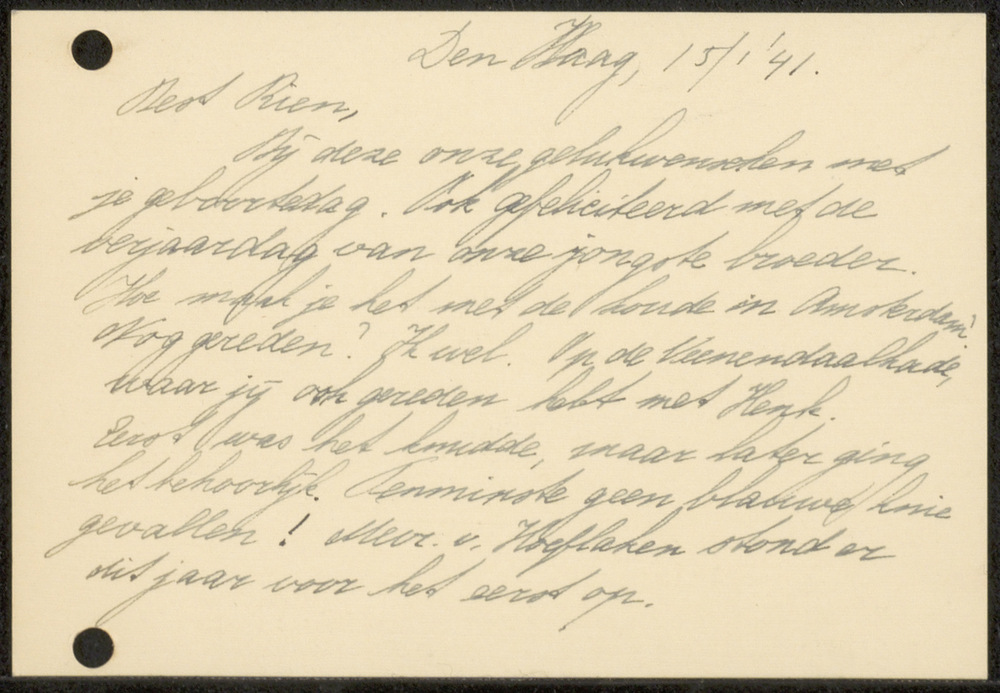 Den Haag, 15/1 '41.
Best Rien,
Bij deze onze gelukwenschen met
je geboortedag. Ook gefeliciteerd met de
verjaardag van onze jongste broeder.
Hoe maak je het met de koude in Amsterdam?
Nog gereden? Ik wel. Op de Veenendaalkade,
waar jij ook gereden hebt met Henk.
Eerst was het knudde, maar later ging
het behoorlijk. Tenminste geen blauwe knie
gevallen! Mevr. v. Hoeflaken stond er
dit jaar voor het eerst op.